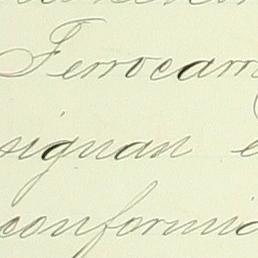 Ferrocarr
signan e
conformid